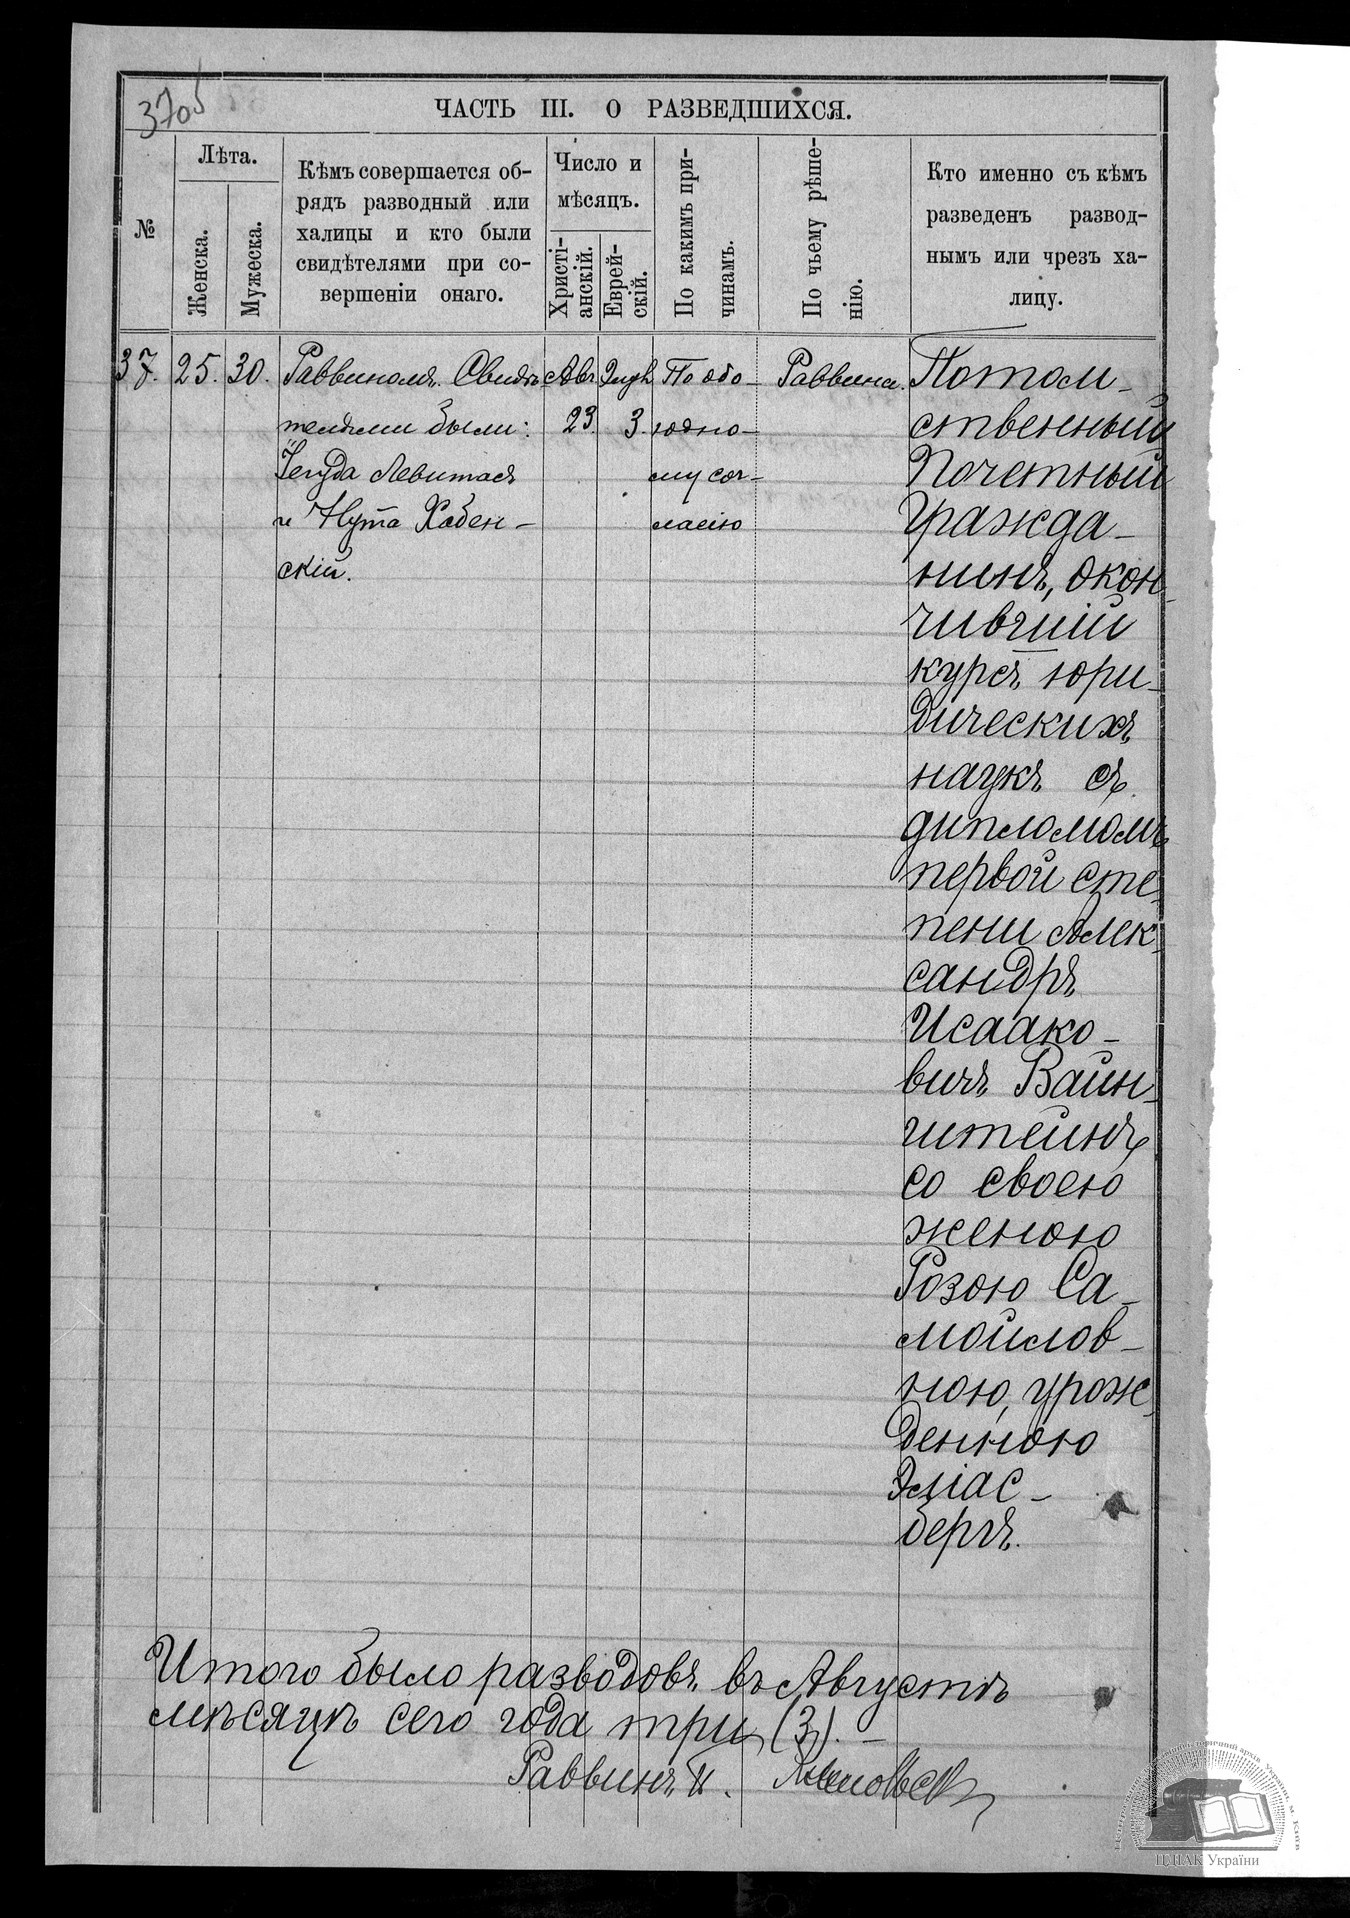 3705
ЧАСТЬ III. О РАЗВЕДШИХСЯ.
№
Лѣта.
Женска.
Мужеска.
Кѣмъ совершается об-
рядъ разводный или
халицы и кто были
свидѣтелями при со-
вершеніи онаго.
Число и
мѣсяцъ.
Христі-
анскій.
Еврей-
скій.
По какимъ при-
чинамъ.
По чьему рѣше-
нію.
Кто именно съ кѣмъ
разведенъ развод-
нымъ или чрезъ ха-
лицу.
37.
25.
30.
Раввиномъ. Свидѣ-
телями были:
Іегуда Левитасъ
и Нута Хабен-
скій.
Авг.
23.
3.
По обо-
юдно-
му сог-
ласію
Раввина.
Потом-
ственный
Почетный
Гражда-
нинъ, окон-
чившій
курсъ юри-
дическихъ
наукъ съ
дипломомъ
первой сте-
пени Алек-
сандръ
Исаако-
вичъ Вайн-
штейнъ
со своею
женою
Розою Са-
мойлов-
ною, урож-
денною
Эліас-
бергъ.
Итого было разводовъ въ Августѣ
мѣсяцѣ сего года три (3). –
Раввинъ
ЦДІАК України